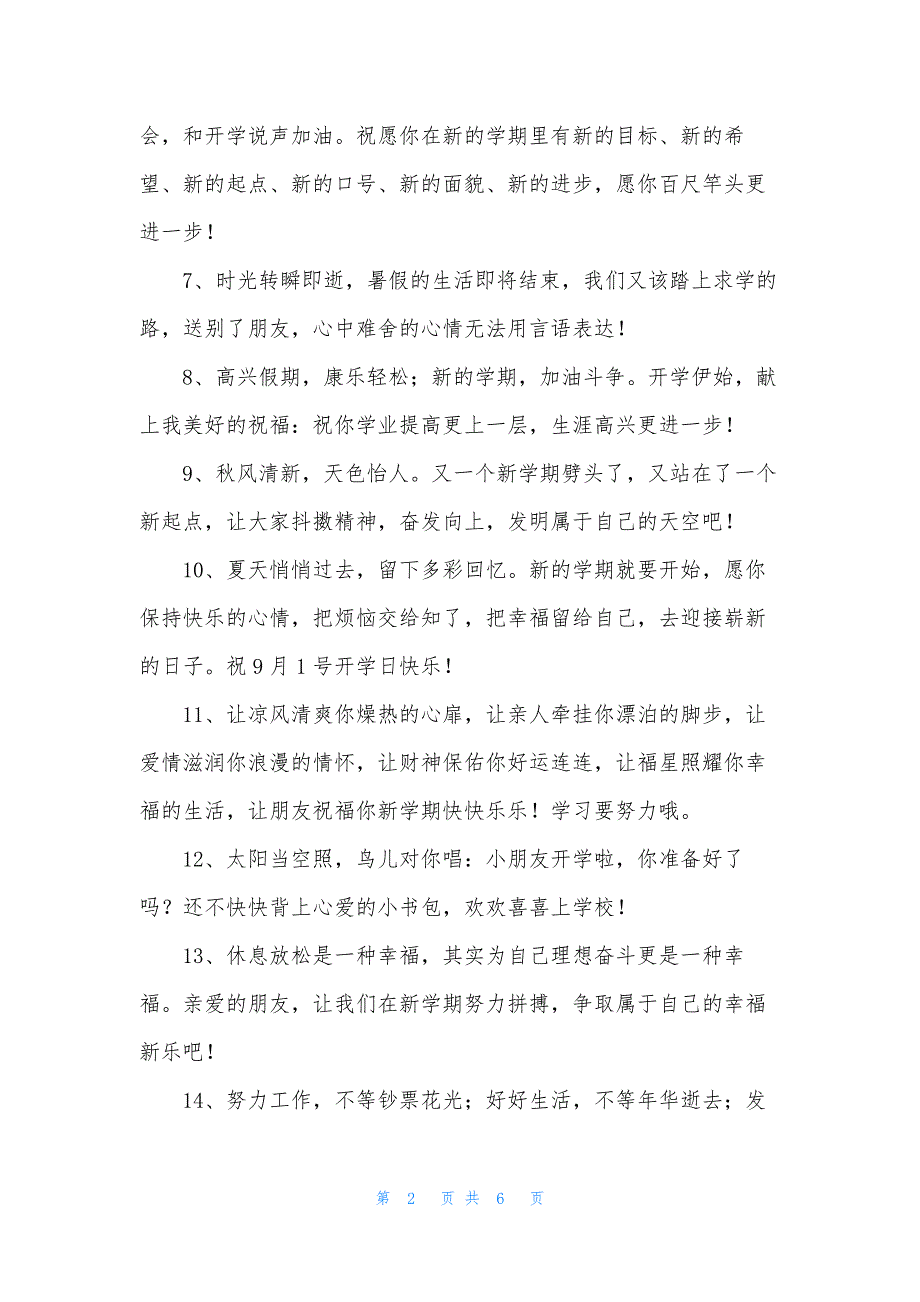 会，和开学说声加油。祝愿你在新的学期里有新的目标、新的希
望、新的起点、新的口号、新的面貌、新的进步，愿你百尺竿头更
进一步！
7、时光转瞬即逝，暑假的生活即将结束，我们又该踏上求学的
路，送别了朋友，心中难舍的心情无法用言语表达！
8、高兴假期，康乐轻松；新的学期，加油斗争。开学伊始，献
上我美好的祝福：祝你学业提高更上一层，生涯高兴更进一步！
9、秋风清新，天色怡人。又一个新学期劈头了，又站在了一个
新起点，让大家抖擞精神，奋发向上，发明属于自己的天空吧！
10、夏天悄悄过去，留下多彩回忆。新的学期就要开始，愿你
保持快乐的心情，把烦恼交给知了，把幸福留给自己，去迎接崭新
的日子。祝 9 月 1 号开学日快乐！
11、让凉风清爽你燥热的心扉，让亲人牵挂你漂泊的脚步，让
爱情滋润你浪漫的情怀，让财神保佑你好运连连，让福星照耀你幸
福的生活，让朋友祝福你新学期快快乐乐！学习要努力哦。
12、太阳当空照，鸟儿对你唱：小朋友开学啦，你准备好了
吗？还不快快背上心爱的小书包，欢欢喜喜上学校！
13、休息放松是一种幸福，其实为自己理想奋斗更是一种幸
福。亲爱的朋友，让我们在新学期努力拼搏，争取属于自己的幸福
新乐吧！
14、努力工作，不等钞票花光；好好生活，不等年华逝去；发
第 2 页 共 6 页